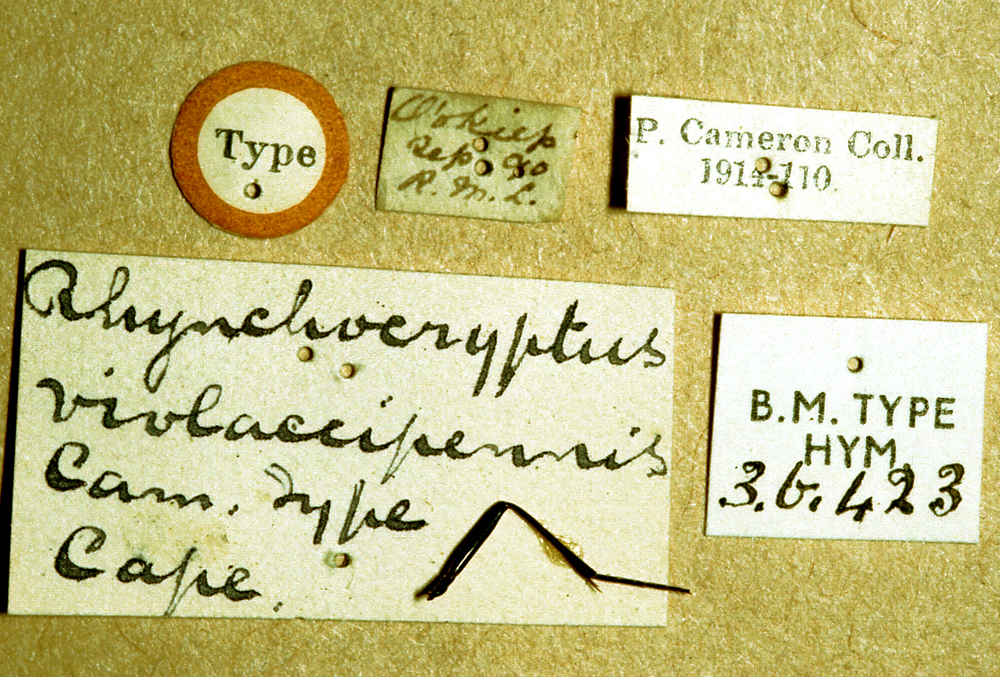 Type
O'okiep
Sep. 90
R. M. L.
P. Cameron Coll.
1914-110.
Rhynchocryptus
violaceipennis
Cam. Type
Cape.
B.M. TYPE
HYM
3.b.423